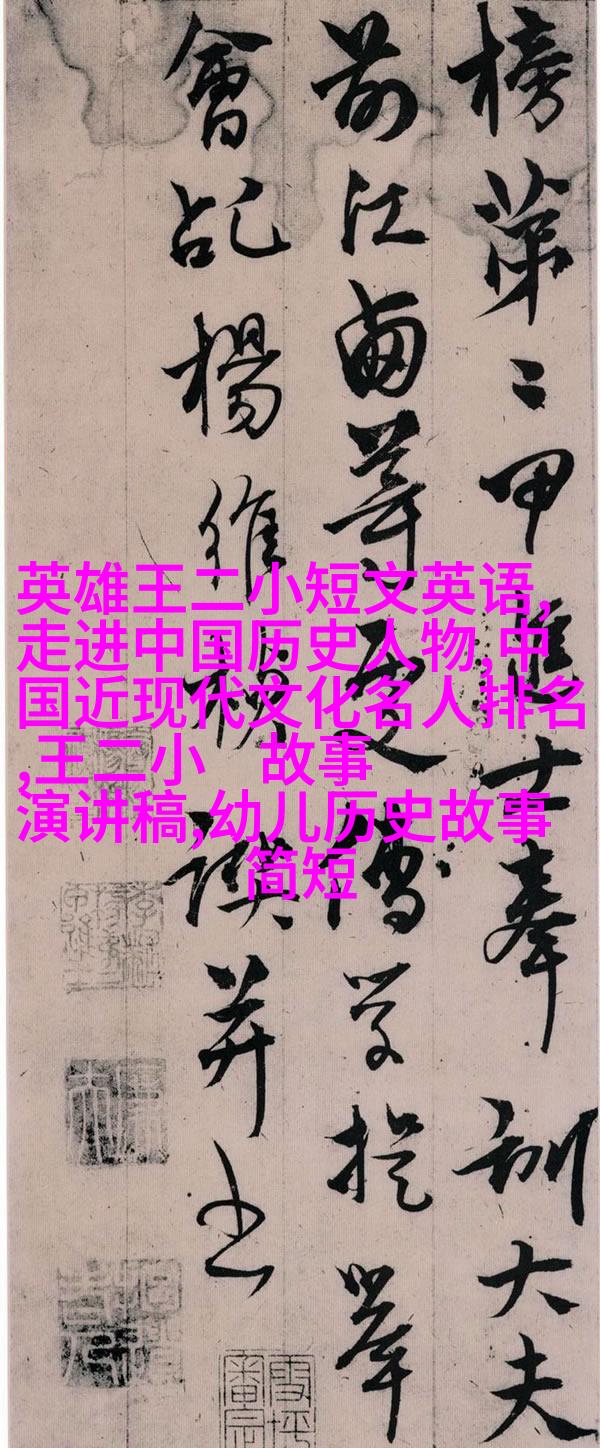 榜第二甲進士奉訓大夫
前江西等處儒學提舉
會稽楊維禎譔并書
英雄王二小短文英语,
走进中国历史人物,中
国近现代文化名人排名
,王二小　故事
演讲稿,幼儿历史故事
简短